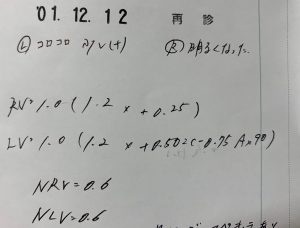 '01.12.12 再診
Ⓛ コロコロ (+) Ⓡ 明るくなった
RV=1.0 (1.2 x +0.25)
LV=1.0 (1.2 x +0.50 -0.75 Ax90)
NRV=0.6
NLV=0.6